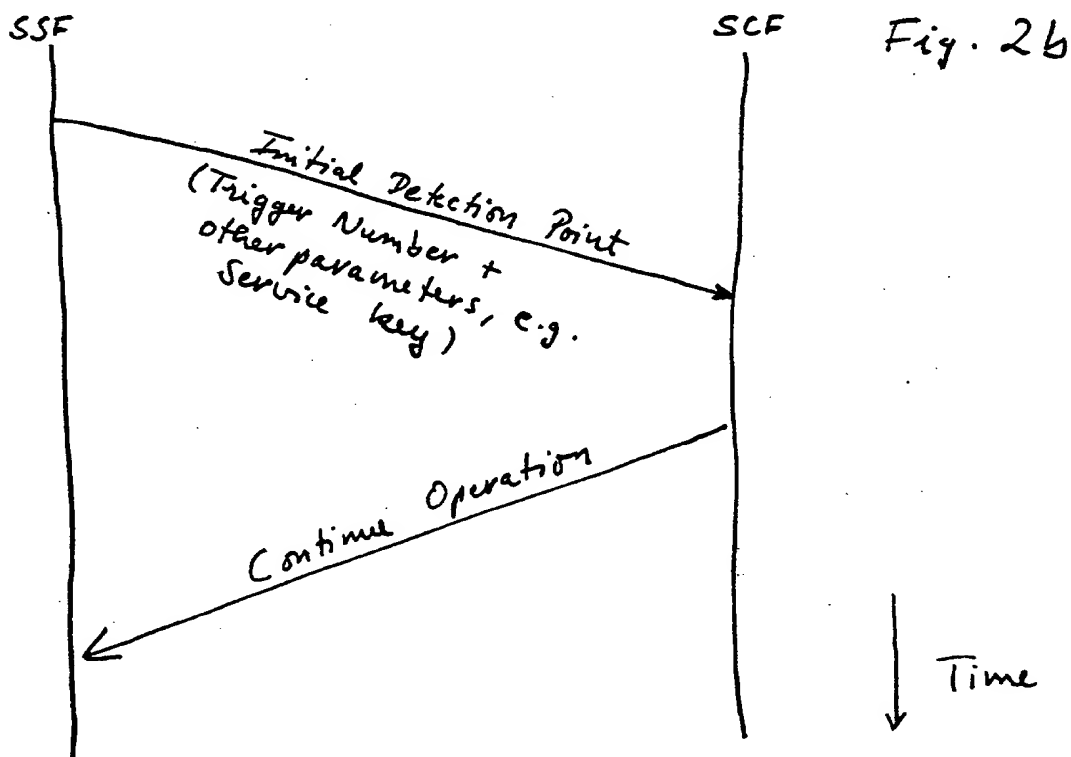 SSF
SCF
Fig. 2b
Initial Detection Point
(Trigger Number +
other parameters, e.g.
Service key)
Continue Operation
Time